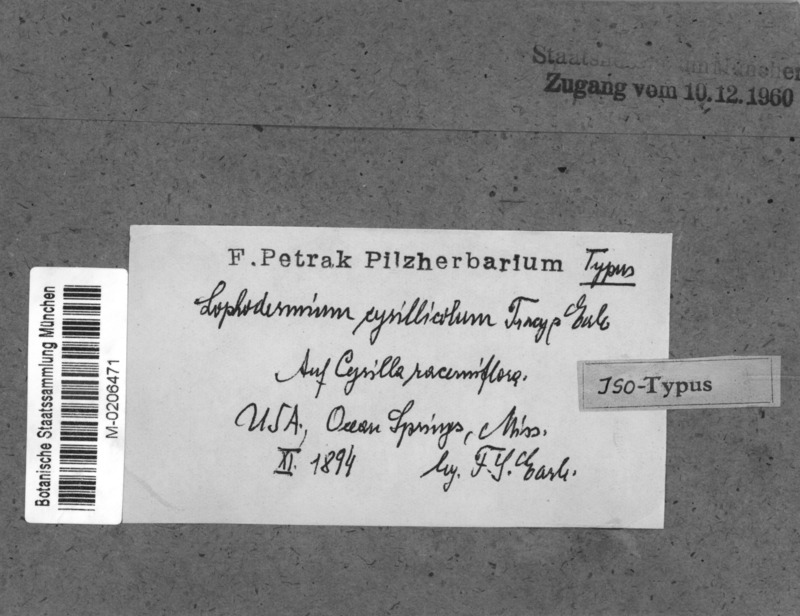 Zugang vom 10.12.1960
F. Petrak Pilzherbarium Typus
Lophodermium cyrillicolum Tracy & Earle
Auf Cyrilla racemiflora.
USA., Ocean Springs, Miss.
XI. 1894 leg. F.S. Earle.
ISO-Typus
Botanische Staatssammlung München
M-0206471